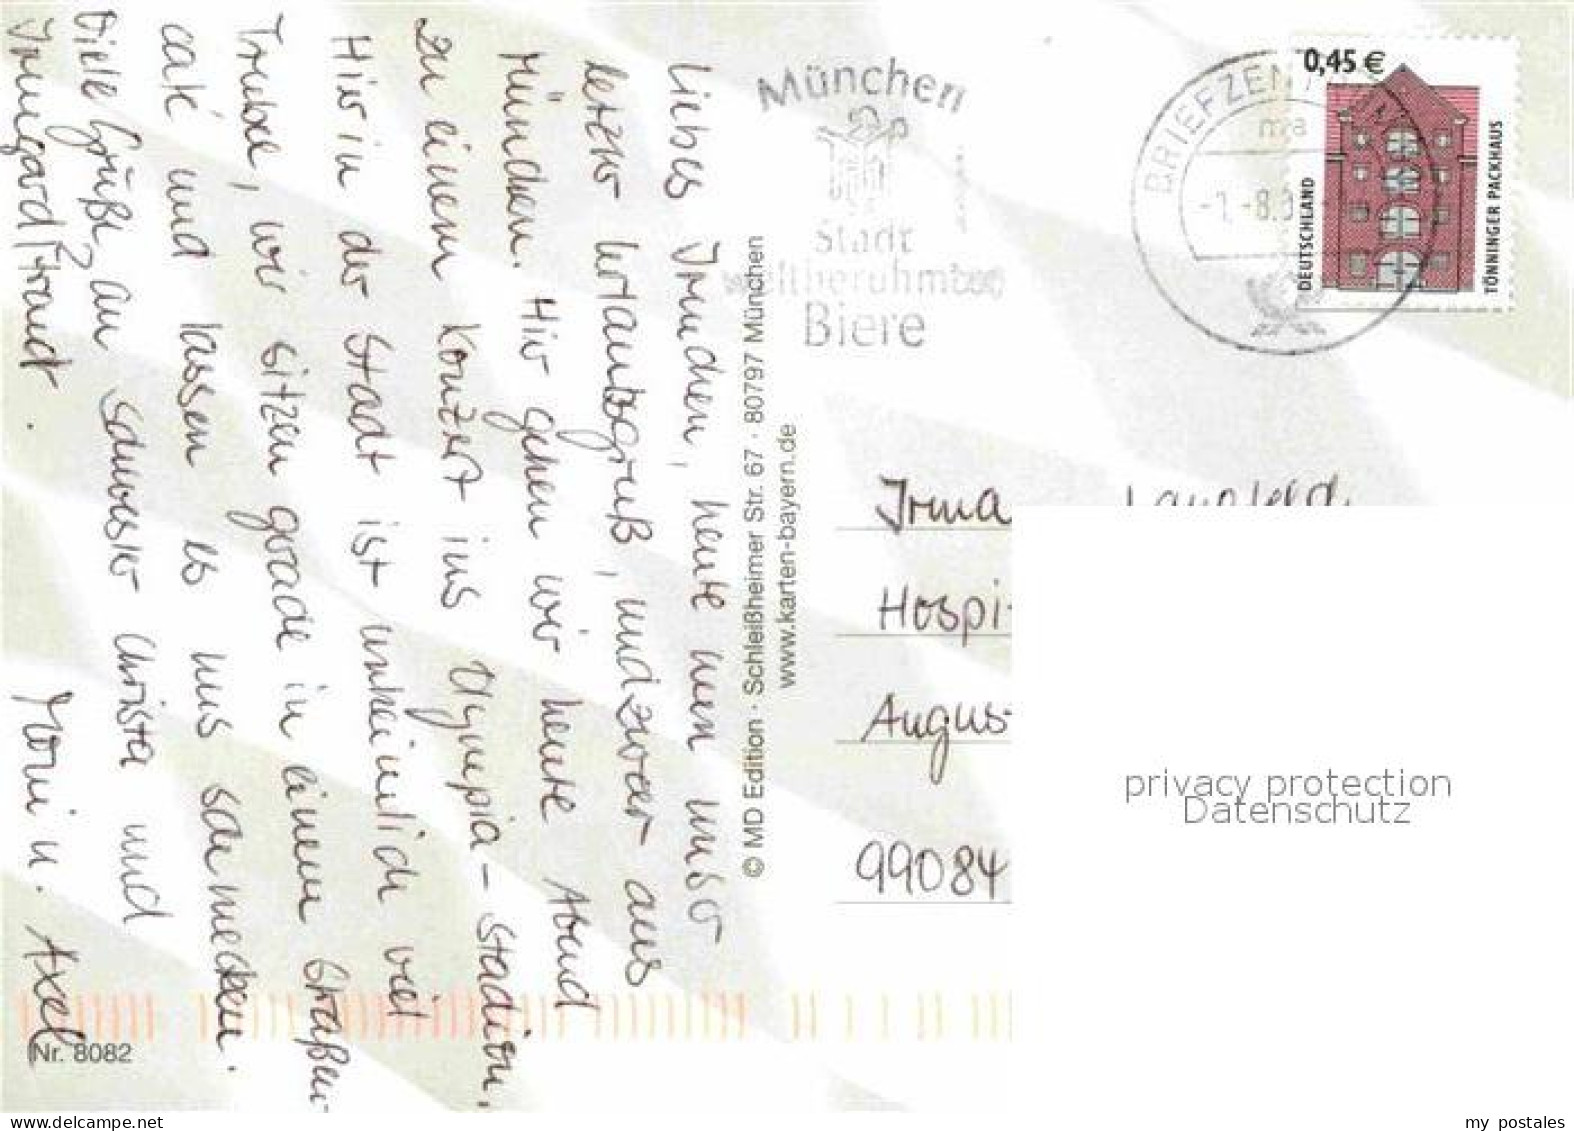 Liebes Irmchen, heute nun unser
letzter Urlaubsgruß, und zwar aus
München. Hier gehen wir heute Abend
zu einem Konzert ins Olympia-Stadion.
Hier in der Stadt ist unheimlich viel
Trubel, wir sitzen gerade in einem Straßen-
café und lassen es uns schmecken.
Viele Grüße, an Schwester Christa und
Irmgard Traut. Moni u. Axel
Nr. 8082
© MD Edition · Schleißheimer Str. 67 · 80797 München
www.karten-bayern.de
München
Stadt
weltberühmter
Biere
BRIEFZEN
ma
-1.-8.0
0,45 €
DEUTSCHLAND
TÖNNINGER PACKHAUS
Irma
Hospi
Augus
99084
privacy protection
Datenschutz
my postales